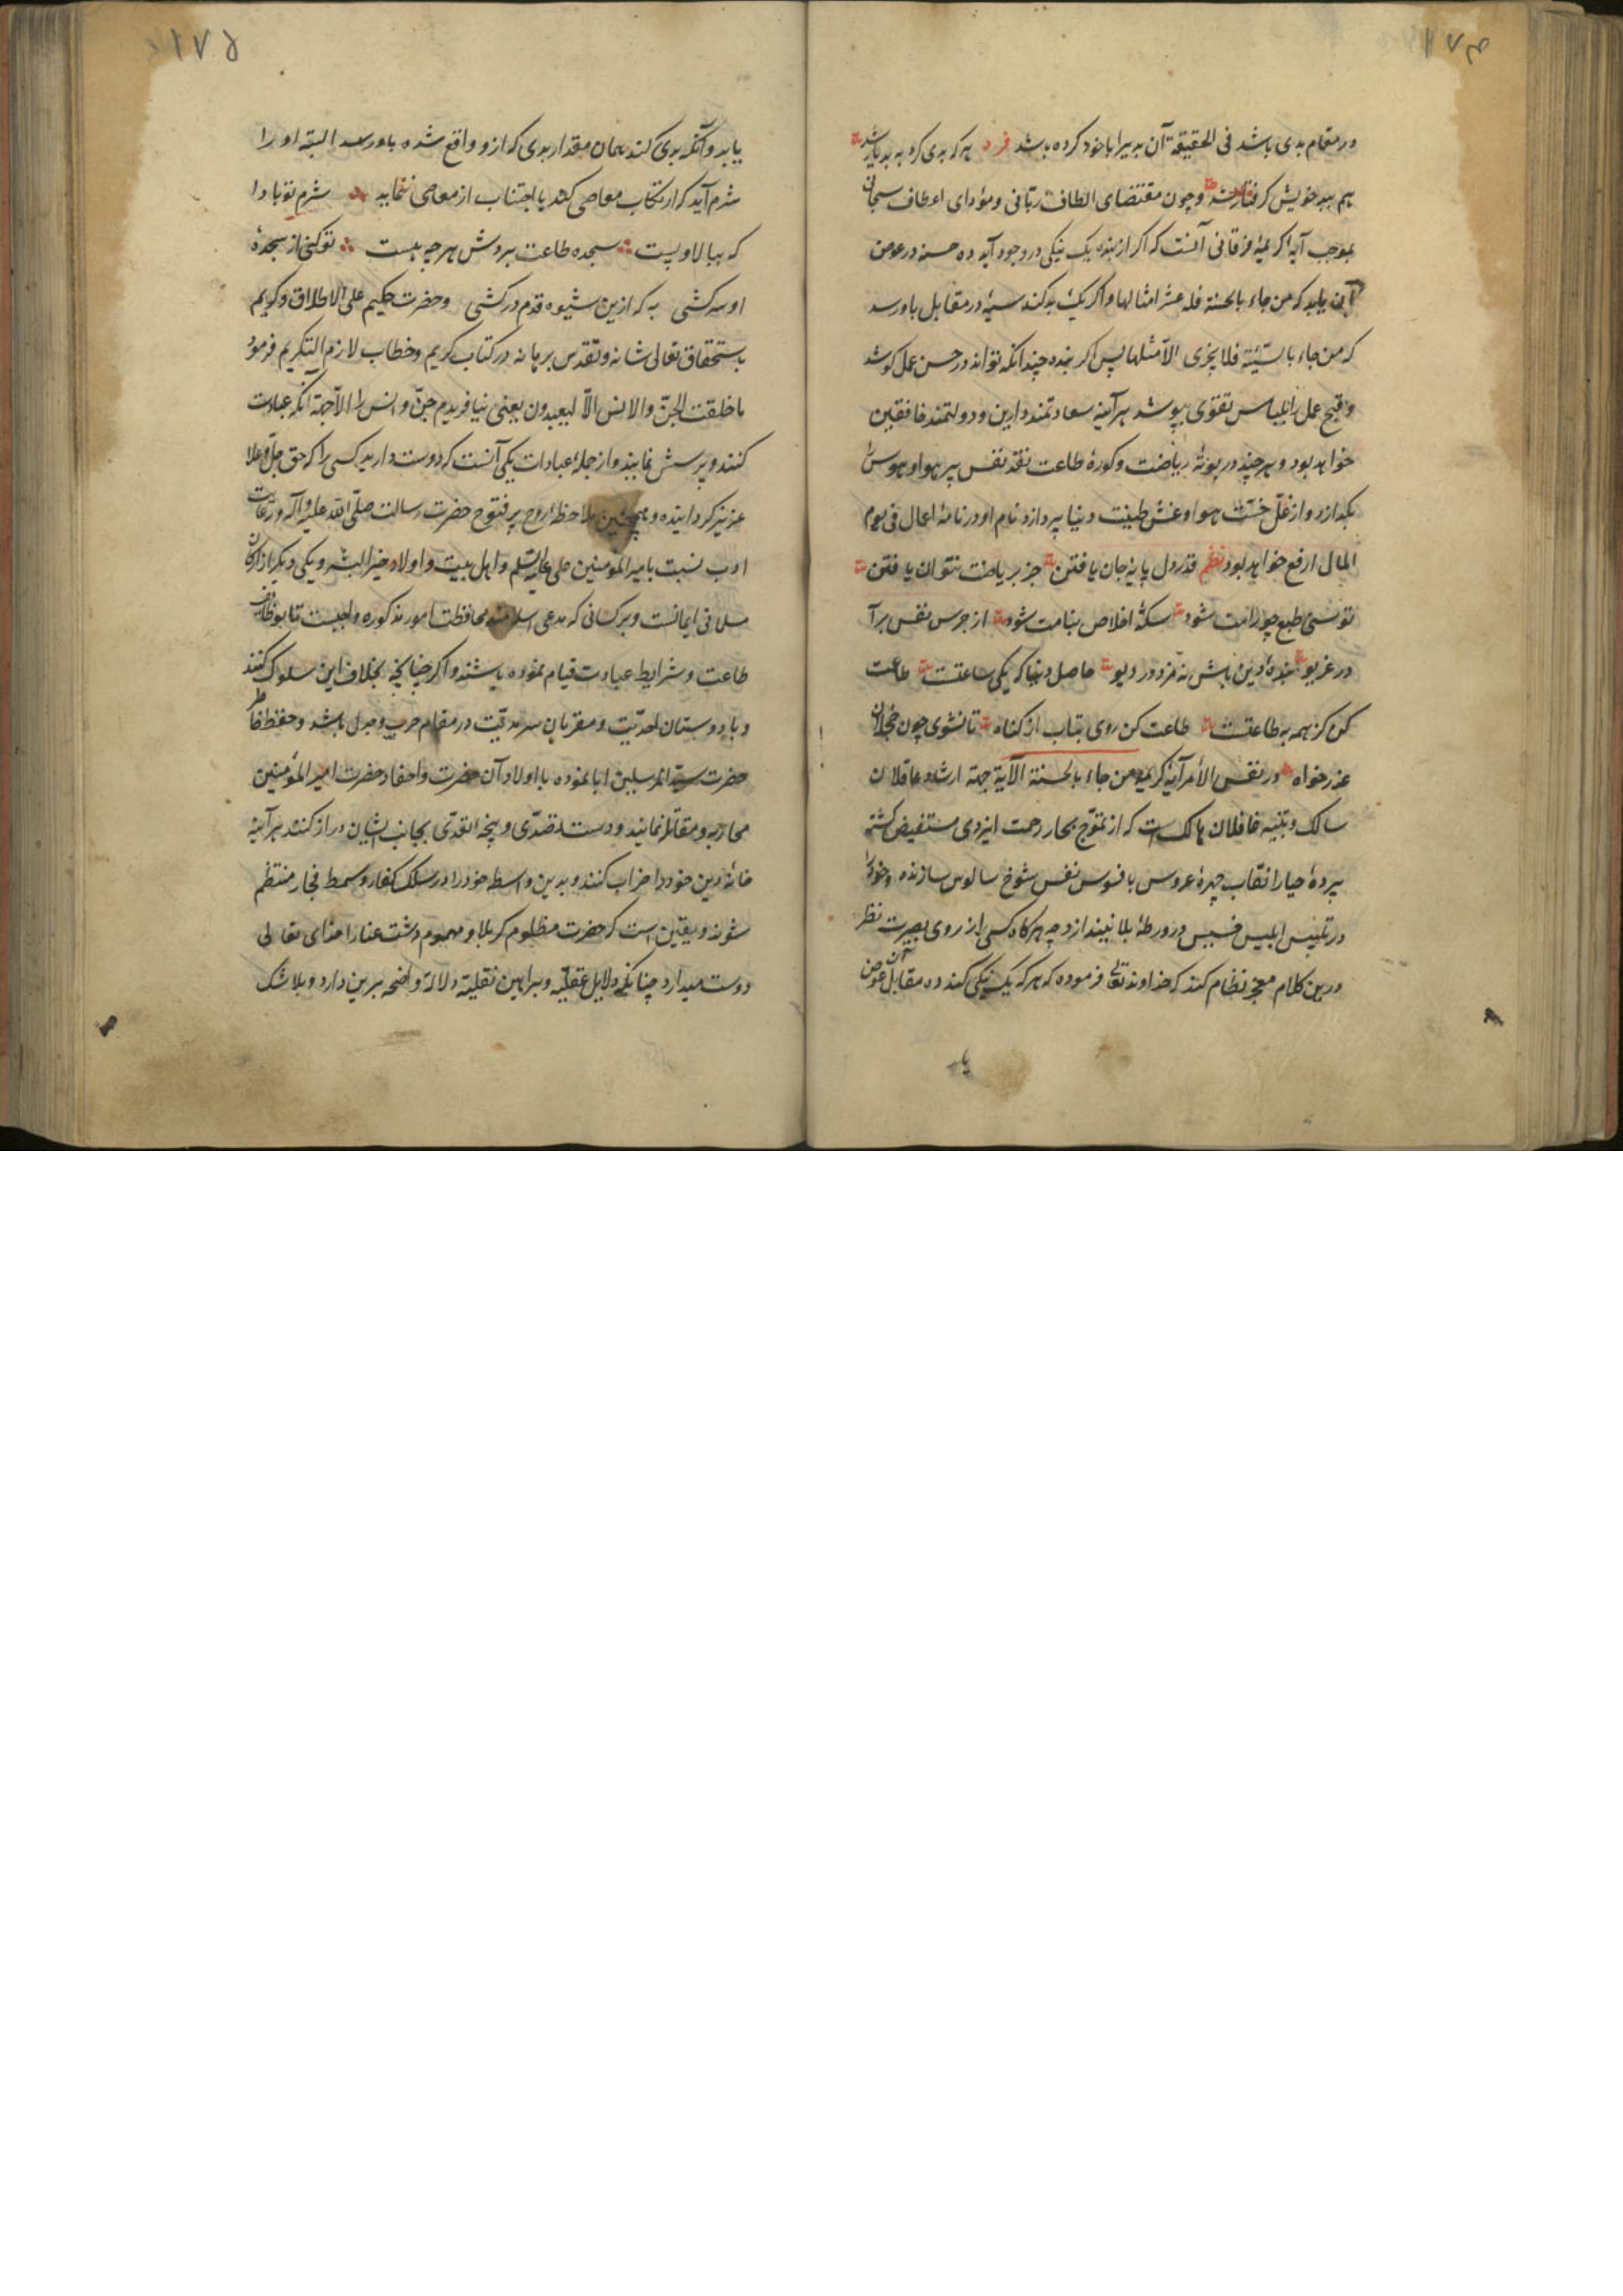 در مقام بدی باشد فی الحقیقة آن بد برا با خود کرده باشد فرد هر که بدی کرد به بد یار شد
هم ببد خویش گرفتار شد و چون مقتضای الطاف ربّانی و مؤدای اعطاف سبحانی
بموجب آیهٔ کریمهٔ فرقانی آنست که اگر از بنده یک نیکی در وجود آید ده حسنه در عوض
آن یابد که من جاء بالحسنة فله عشر امثالها و اگر یک بد کند سیئهٔ در مقابل باو رسد
که من جاء بالسّیّئة فلا یجزی الّا مثلها پس اگر بنده چندانکه تواند در حسن عمل کوشد
و قبح عمل را بلباس تقوی بپوشد هر آینه سعادتمند دارین و دولتمند خافقین
خواهد بود و هر چند در بوتهٔ ریاضت و کورهٔ طاعت نقد نفس پر هوا و هوس را
بگدازد و از غلّ خبث هوا و غش طینت دنیا پردازد نام او در نامهٔ اعمال فی یوم
المال ارفع خواهد بود نظم قدر دل پایهٔ جان یافتن جز بریاضت نتوان یافتن
توسنی طبع چو رامت شود سکهٔ اخلاص بنامت شود از جرس نفس برآ
در غریو بندهٔ دین باش نه مزدور دیو حاصل دنیا که یکی ساعتست طاعت
کن کز همه به طاعتست طاعت کن روی بتاب از گناه تا نشوی چون خجلان
عذر خواه در نفس الأمر آیهٔ کریمهٔ من جاء بالحسنة الآیة جهة ارشاد عاقلان
سالک و تنبیه غافلان هالک است که از تموّج بحار رحمت ایزدی مستفیض گشته
پردهٔ حیا را نقاب چهرهٔ عروس با فسوس نفس شوخ سالوس سازنده و خود را
در تلبیس ابلیس خسیس در ورطهٔ بلا نیندازد چه هر گاه کسی از روی بصیرت نظر
درین کلام معجز نظام کند که خداوند تعالی فرموده که هر که یک نیکی کند ده مقابل آن عوض
یابد و آنکه بدی کند همان مقدار بدی که ازو واقع شده باو رسد البته او را
شرم آید که ارتکاب معاصی کند یا اجتناب از معاصی ننماید شرم تو بادا
که ببالا و پست سجده طاعت بردش هر چه هست تو کنی از سجدهٔ
او سرکشی به که ازین شیوه قدم درکشی و حضرت حکیم علی الاطلاق و کریم
باستحقاق تعالی شانه و تقدس برهانه در کتاب کریم و خطاب لازم التکریم فرمود
ما خلقت الجنّ والانس الّا لیعبدون یعنی نیافریدم جنّ و انس را الّا جهة آنکه عبادت
کنند و پرستش نمایند و از جملهٔ عبادات یکی آنست که دوست دارید کسی را که حق جلّ و علا
عزیز گردانیده و همچنین ملاحظهٔ اروح پر فتوح حضرت رسالت صلّی الله علیه و آله و رعایت
ادب نسبت بامیر المؤمنین علی علیه السّلم و اهل بیت و اولاد خیر البشر و یکی دیگر از ارکان
مسلمانی ایمانست و بر کسانی که مدعی اسلامند محافظت امور مذکوره واجبست تا بوظائف
طاعت و شرایط عبادت قیام نموده باشند و اگر چنانچه بخلاف این سلوک کنند
و با دوستان احدیّت و مقربان سرمدیّت در مقام حرب و جدل باشد و حفظ خاطر
حضرت سیّد المرسلین ابا نموده با اولاد آن حضرت و احفاد حضرت امیر المؤمنین
محاربه و مقاتله نمایند و دست تصدّی و پنجه تعدّی بجانب ایشان دراز کنند هر آینه
خانهٔ دین خود را خراب کنند و بدین واسطه خود را در سلک کفار و سمط فجار منتظم
شوند و یقین است که حضرت مظلوم کربلا و مهموم دشت عنا را خدای تعالی
دوست میدارد چنانکه دلایل عقلیّه و براهین نقلیّه دلالة واضحه برین دارد و بلا شک